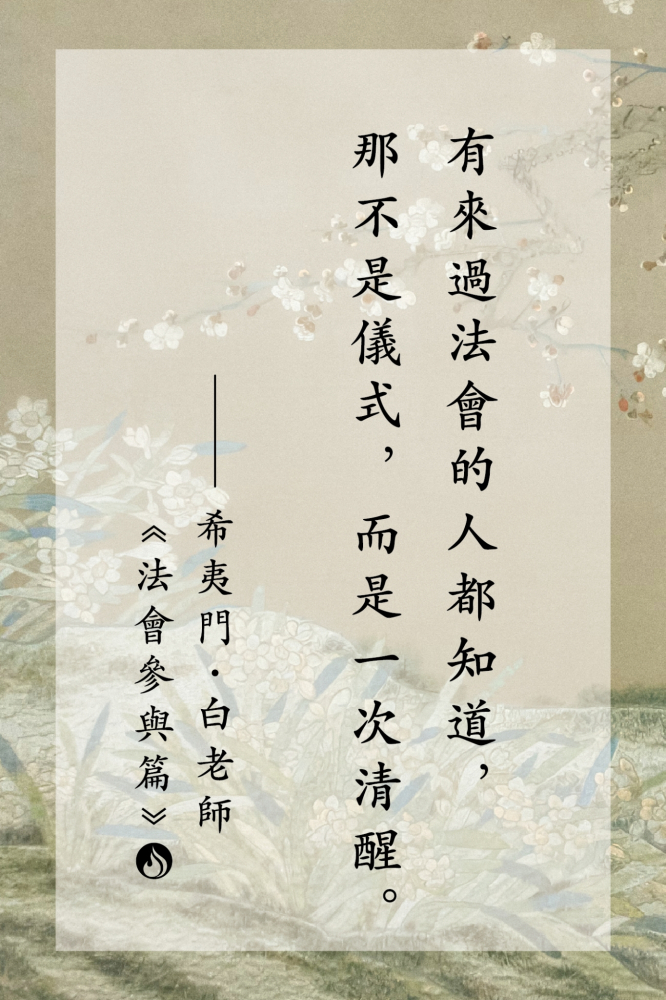 有來過法會的人都知道，
那不是儀式，而是一次清醒。
——希夷門·白老師
《法會參與篇》